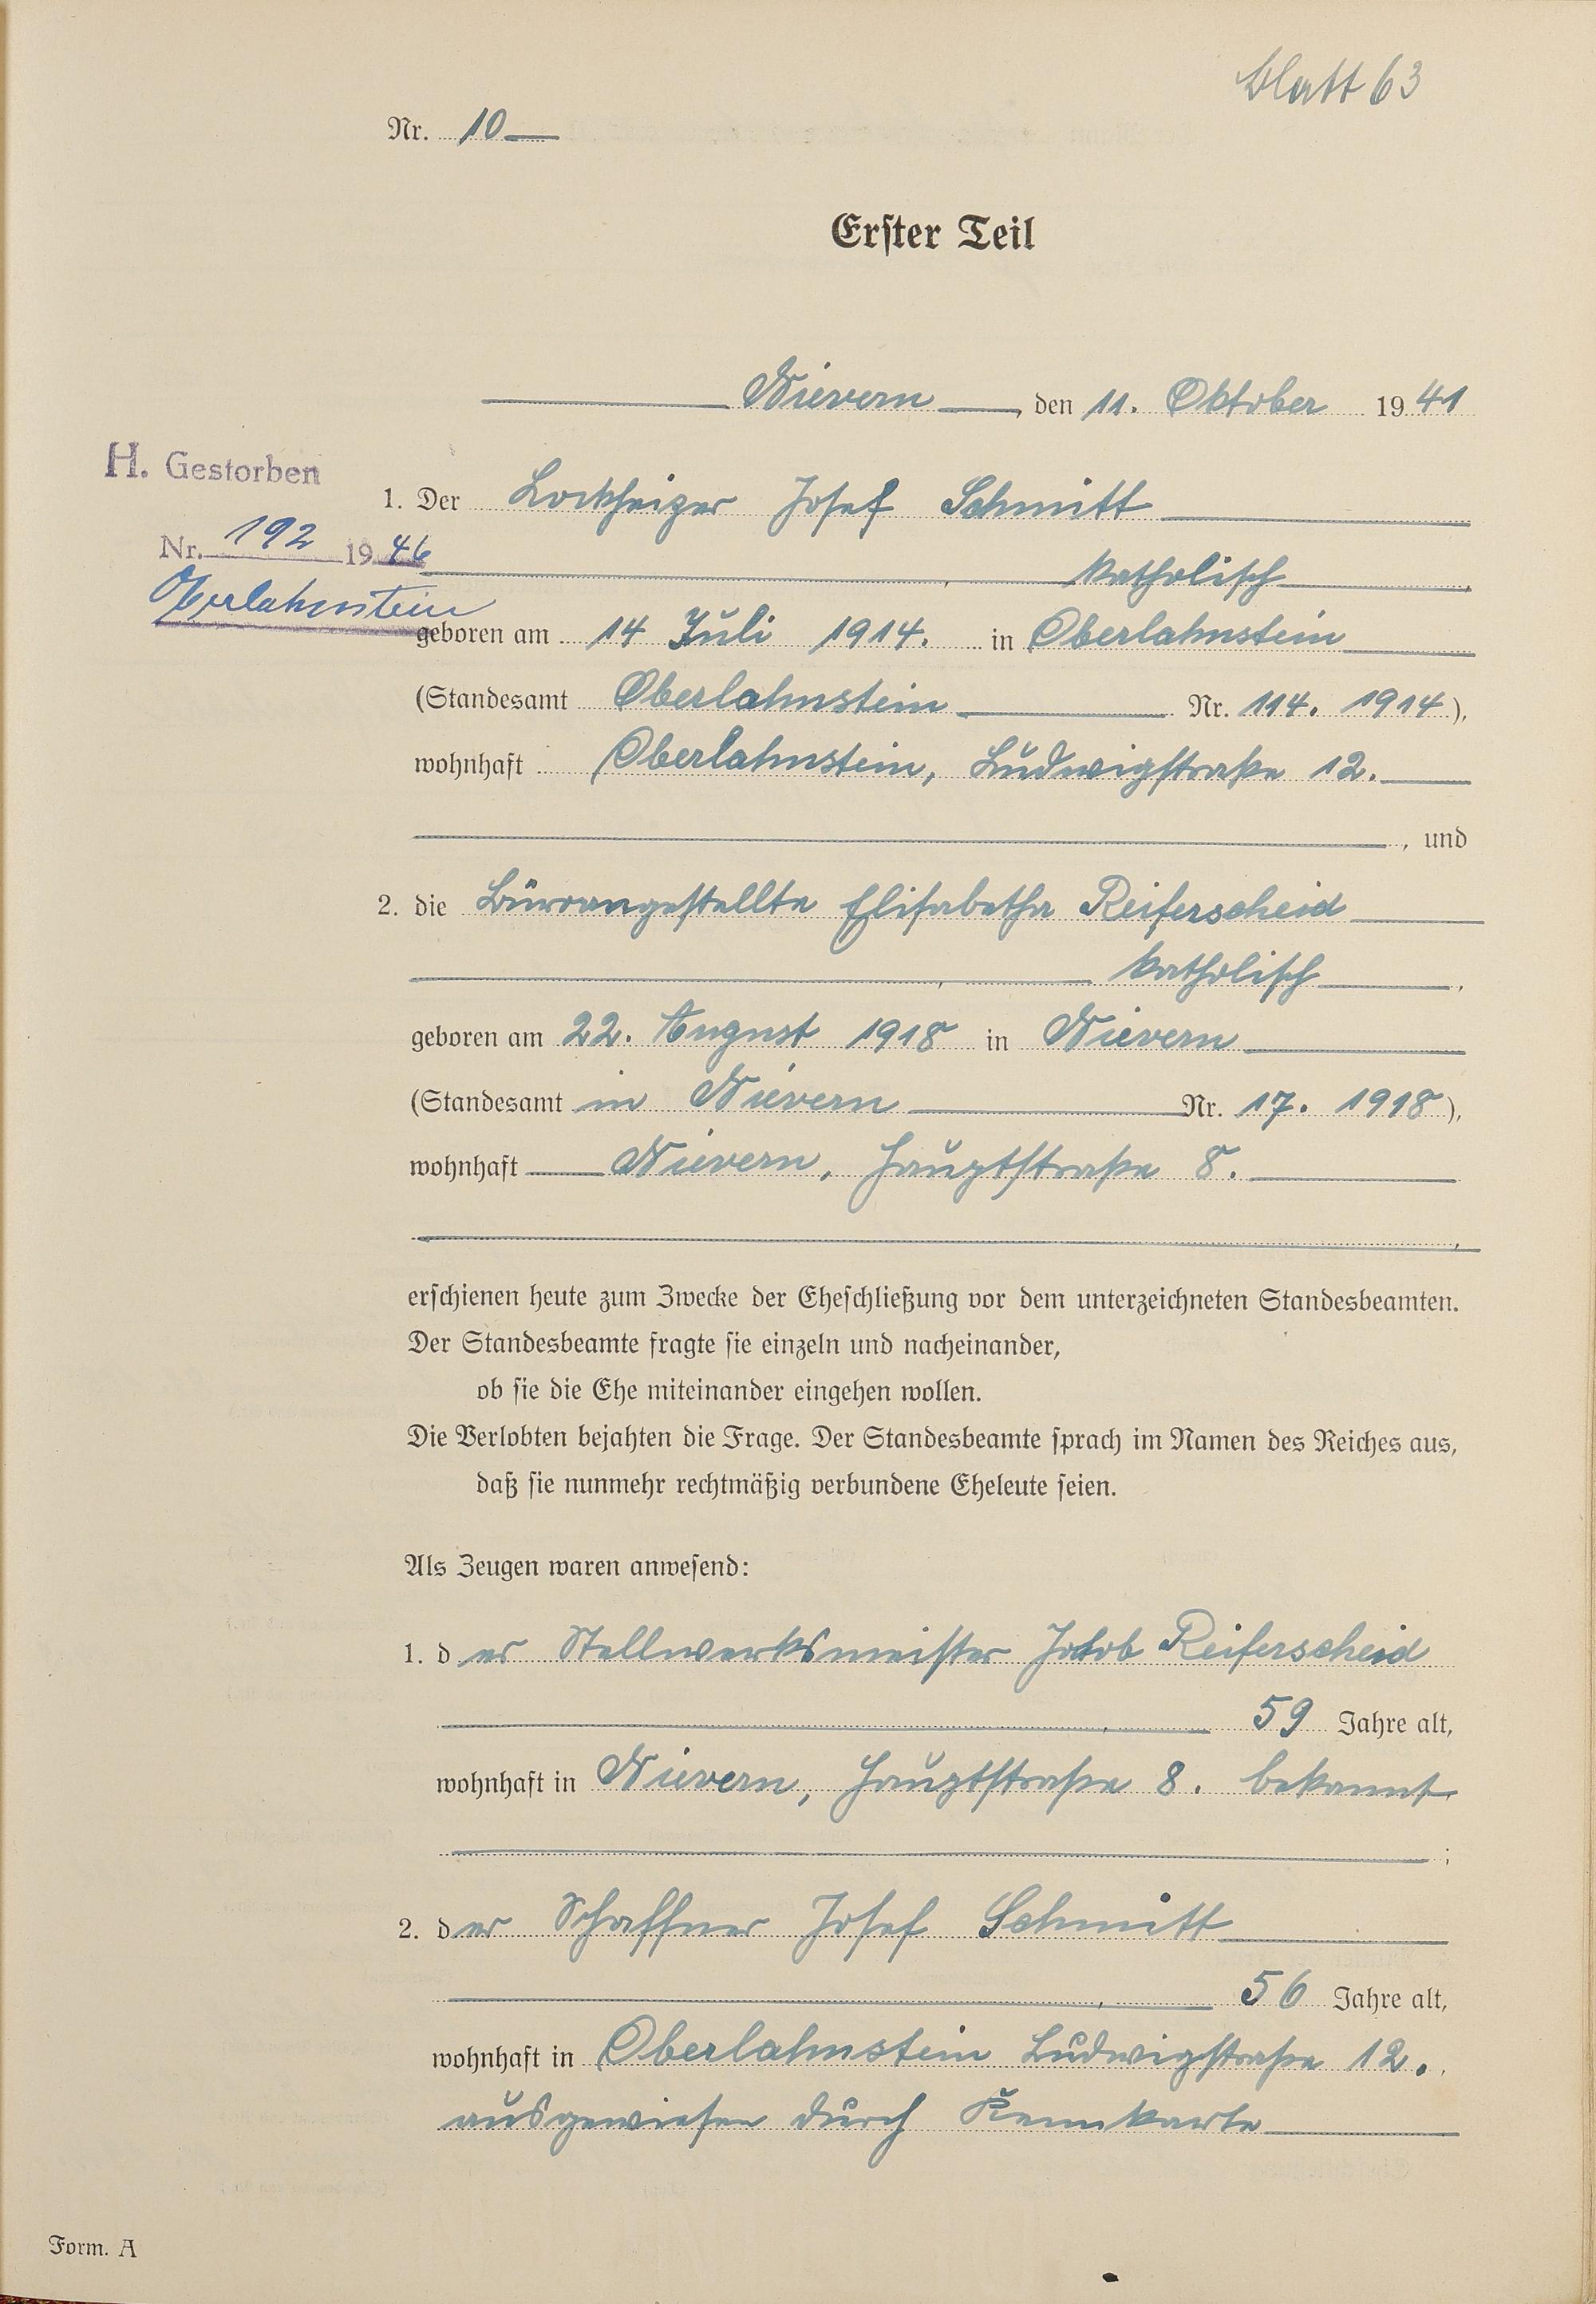 Blatt 63
Nr. 10
Erster Teil
Nievern, den 11. Oktober 1941
H. Gestorben
Nr. 192 1946
Oberlahnstein
1. Der Lokheizer Josef Schmitt
, katholisch,
geboren am 14 Juli 1914. in Oberlahnstein
(Standesamt Oberlahnstein Nr. 114. 1914),
wohnhaft Oberlahnstein, Ludwigstraße 12.
, und
2. die Büroangestellte Elisabetha Reiferscheid
, katholisch,
geboren am 22. August 1918 in Nievern
(Standesamt in Nievern Nr. 17. 1918),
wohnhaft Nievern, Hauptstraße 8.
,
erschienen heute zum Zwecke der Eheschließung vor dem unterzeichneten Standesbeamten.
Der Standesbeamte fragte sie einzeln und nacheinander,
ob sie die Ehe miteinander eingehen wollen.
Die Verlobten bejahten die Frage. Der Standesbeamte sprach im Namen des Reiches aus,
daß sie nunmehr rechtmäßig verbundene Eheleute seien.
Als Zeugen waren anwesend:
1. der Stellwerksmeister Jakob Reiferscheid
, 59 Jahre alt,
wohnhaft in Nievern, Hauptstraße 8. bekannt
;
2. der Schaffner Josef Schmitt
, 56 Jahre alt,
wohnhaft in Oberlahnstein Ludwigstraße 12.
ausgewiesen durch Kennkarte
Form. A